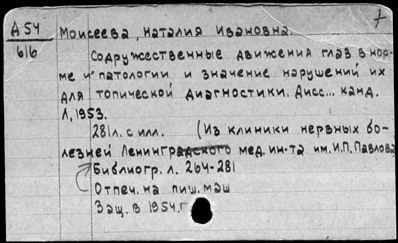 А 54
616
Моисеева, Наталия Ивановна.
Содружественные движения глаз в нор-
ме и патологии и значение нарушений их
для топической диагностики. Дисс... канд.
Л, 1953.
281л. с илл. (Из клиники нервных бо-
лезней Ленинградского мед. ин-та им. И.П. Павлова
Библиогр. л. 264-281
Отпеч. на пиш. маш
Защ. в 1954.г